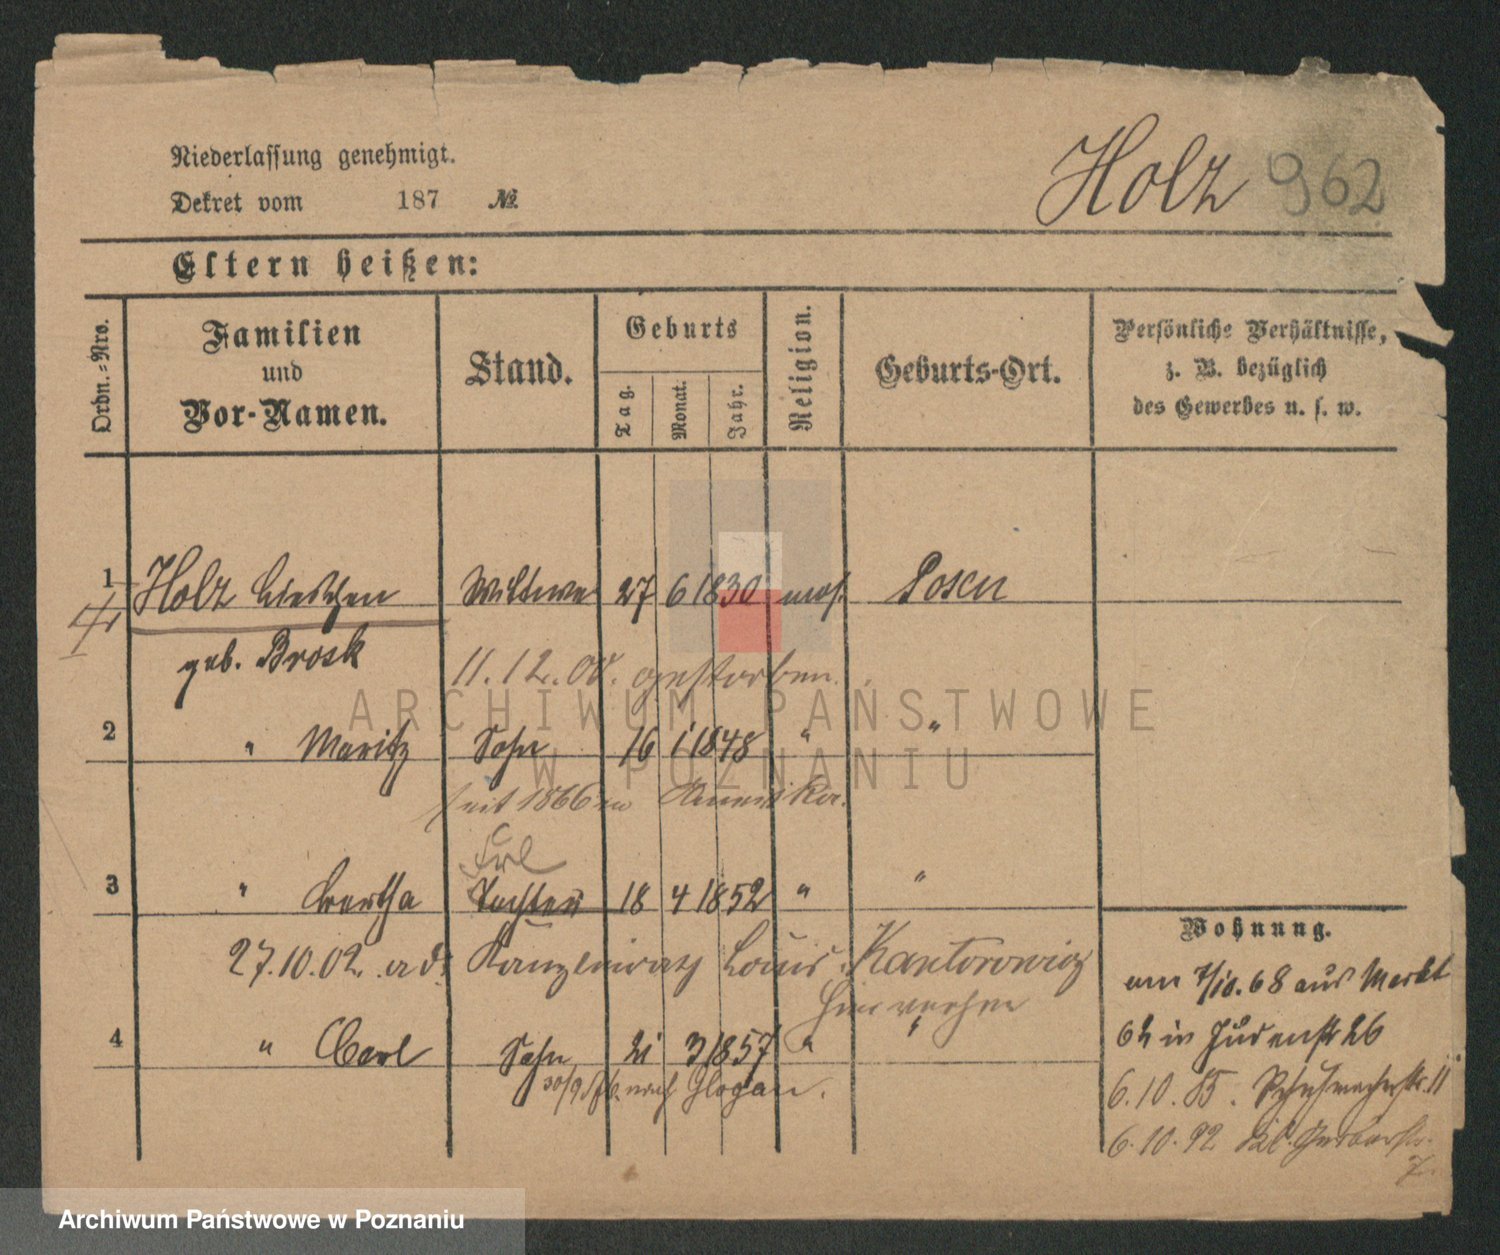 Niederlassung genehmigt.
Dekret vom 187 №
Holz 962
Eltern heißen:
Ordn.-Nro.
Familien
und
Vor-Namen.
Stand.
Geburts
Tag.
Monat.
Jahr.
Religion.
Geburts-Ort.
Persönliche Verhältnisse,
z. B. bezüglich
des Gewerbes u. s. w.
1 Holz Wittwe 27 6 1830 mos. Posen
geb. Brosk
11.12.00. gestorben.
2 " Moritz Sohn 16 1 1848 " "
seit 1866 in Amerika.
Frl
3 " Bertha Tochter 18 4 1852 " "
27.10.02. a. d. Louis Kantorowicz
4 " Carl Sohn 21 3 1857 " "
nach Glogau.
Wohnung.
am 7/10.68 aus Markt
62 in Judenstr 26
6.10.85. Schuhmacherstr. 11
6.10.92 Kl. Gerberstr.
7.
ARCHIWUM PAŃSTWOWE
W POZNANIU
Archiwum Państwowe w Poznaniu